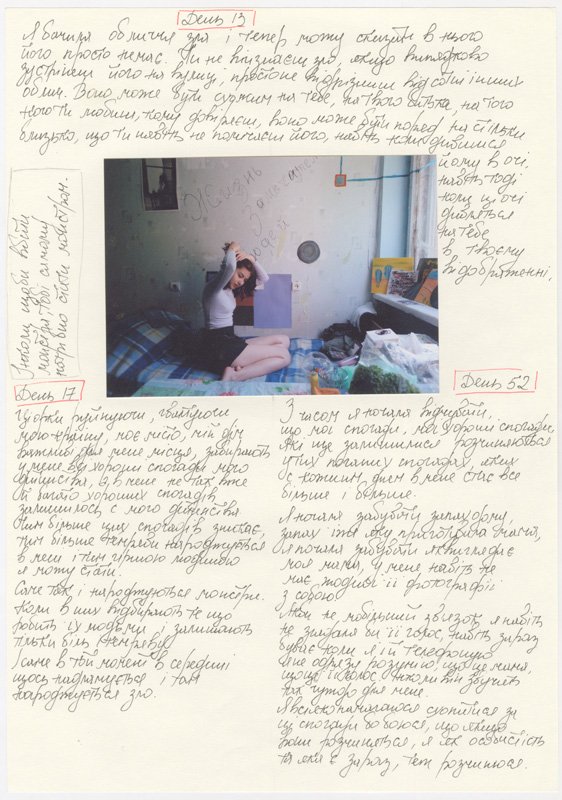 День 13
Я бачила обличчя зла і тепер можу сказати в нього
його просто немає. Ти не впізнаєш зло, якщо випадково
зустрінеш його на вулиці, простіше відрізниш від сотні інших
облич. Воно може бути схожим на тебе, на твого батька, на того
кого ти любиш, кому довіряєш, воно може бути поряд, на стільки
близько, що ти навіть не помічаєш його, навіть коли дивишся
йому в очі,
навіть тоді
коли ці очі
дивляться
на тебе
в твоєму
відображенні.
Інколи щоби вбити
монстра, тобі самому
потрібно стати монстром.
Жизнь
Замечательных
людей
День 17
руйнуючи, ґвалтуючи
мою країну, моє місто, мій дім
важливі для мене місця, забирають
у мене всі хороші спогади мого
дитинства, а в мене не так вже
й багато хороших спогадів
залишилось с мого дитинства.
Чим більше цих спогадів зникає,
тим більше темряви народжується
в мені і тим гіршою людиною
я можу стати.
Саме так і народжуються монстри.
Коли в них відбирають те що
робить їх людьми, і залишають
тільки біль і темряву.
І саме в той момент в середині
щось надламується і там
народжується зло.
День 52
З часом я почала відчувати,
що мої спогади, мої хороші спогади,
які ще залишилися розчиняються
у тих поганих спогадах, яких
с кожним днем в мене стає все
більше і більше.
Я почала забувати запах дому,
запах їжі яку приготувала мама,
я почала забувати як виглядає
моя мама, у мене навіть не
має жодної її фотографії
з собою.
Якби не мобільний зв'язок я навіть
не згадала би її голос, навіть зараз
буває коли я їй телефоную
я не одразу розумію, що це мама,
що це її голос, інколи він звучить
так чужо для мене.
Я всіляко намагаюся схопитися за
ці спогади бо боюся, що якщо
вони розчиняться, я як особистість
та яка є зараз, теж розчинюся.